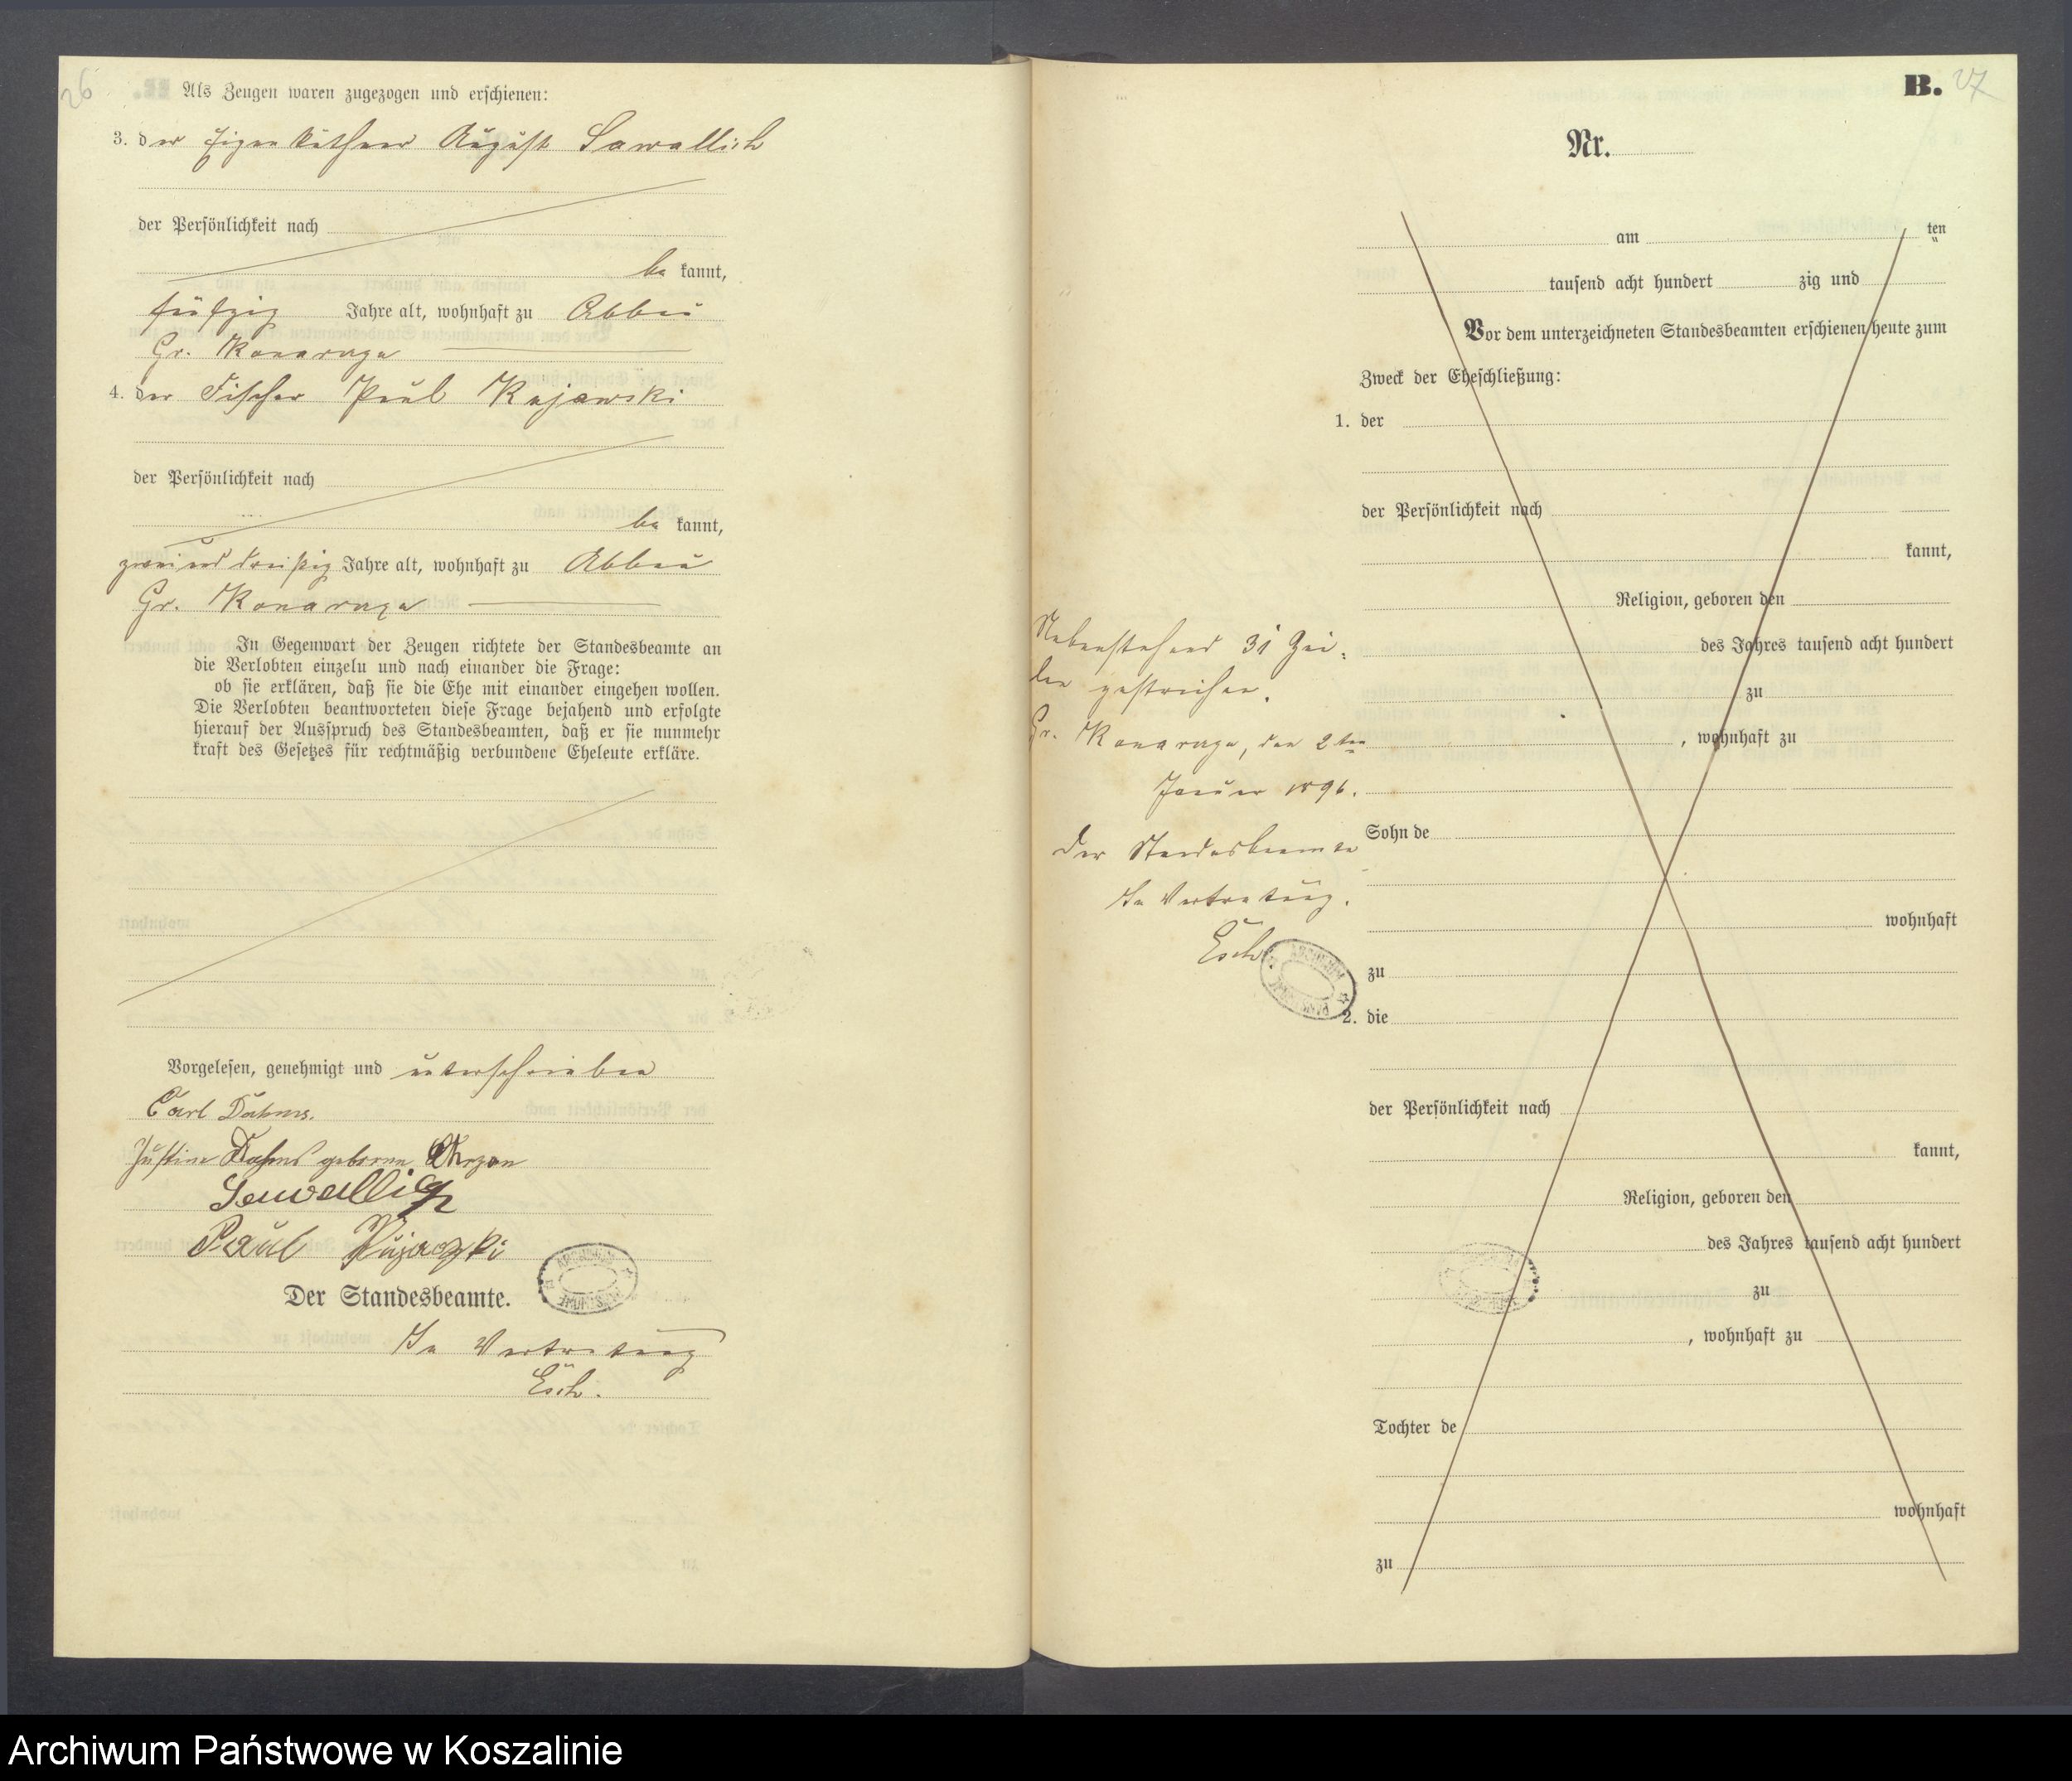 26
Als Zeugen waren zugezogen und erschienen:
3. der Eigenkäthner August Sawallich
der Persönlichkeit nach
be kannt,
fünfzig Jahre alt, wohnhaft zu Abbau
Gr. Konarzyn
4. der Fischer Paul Kujawski
der Persönlichkeit nach
be kannt,
zweiunddreißig Jahre alt, wohnhaft zu Abbau
Gr. Konarzyn
In Gegenwart der Zeugen richtete der Standesbeamte an
die Verlobten einzeln und nach einander die Frage:
ob sie erklären, daß sie die Ehe mit einander eingehen wollen.
Die Verlobten beantworteten diese Frage bejahend und erfolgte
hierauf der Ausspruch des Standesbeamten, daß er sie nunmehr
kraft des Gesetzes für rechtmäßig verbundene Eheleute erkläre.
Vorgelesen, genehmigt und unterschrieben
Carl Dahms.
Justine Dahms geborene
Sawallich
Paul
Der Standesbeamte.
In Vertretung
Esch.
B. 27
Nr.
am ten
tausend acht hundert zig und
Vor dem unterzeichneten Standesbeamten erschienen heute zum
Zweck der Eheschließung:
1. der
der Persönlichkeit nach
kannt,
Religion, geboren den
des Jahres tausend acht hundert
zu
, wohnhaft zu
Sohn de
wohnhaft
zu
2. die
der Persönlichkeit nach
kannt,
Religion, geboren den
des Jahres tausend acht hundert
zu
, wohnhaft zu
Tochter de
wohnhaft
zu
Nebenstehend 31 Zei-
len gestrichen.
Gr. Konarzyn, den 2ten
Januar 1896.
Der Standesbeamte
In Vertretung.
Esch
Archiwum Państwowe w Koszalinie